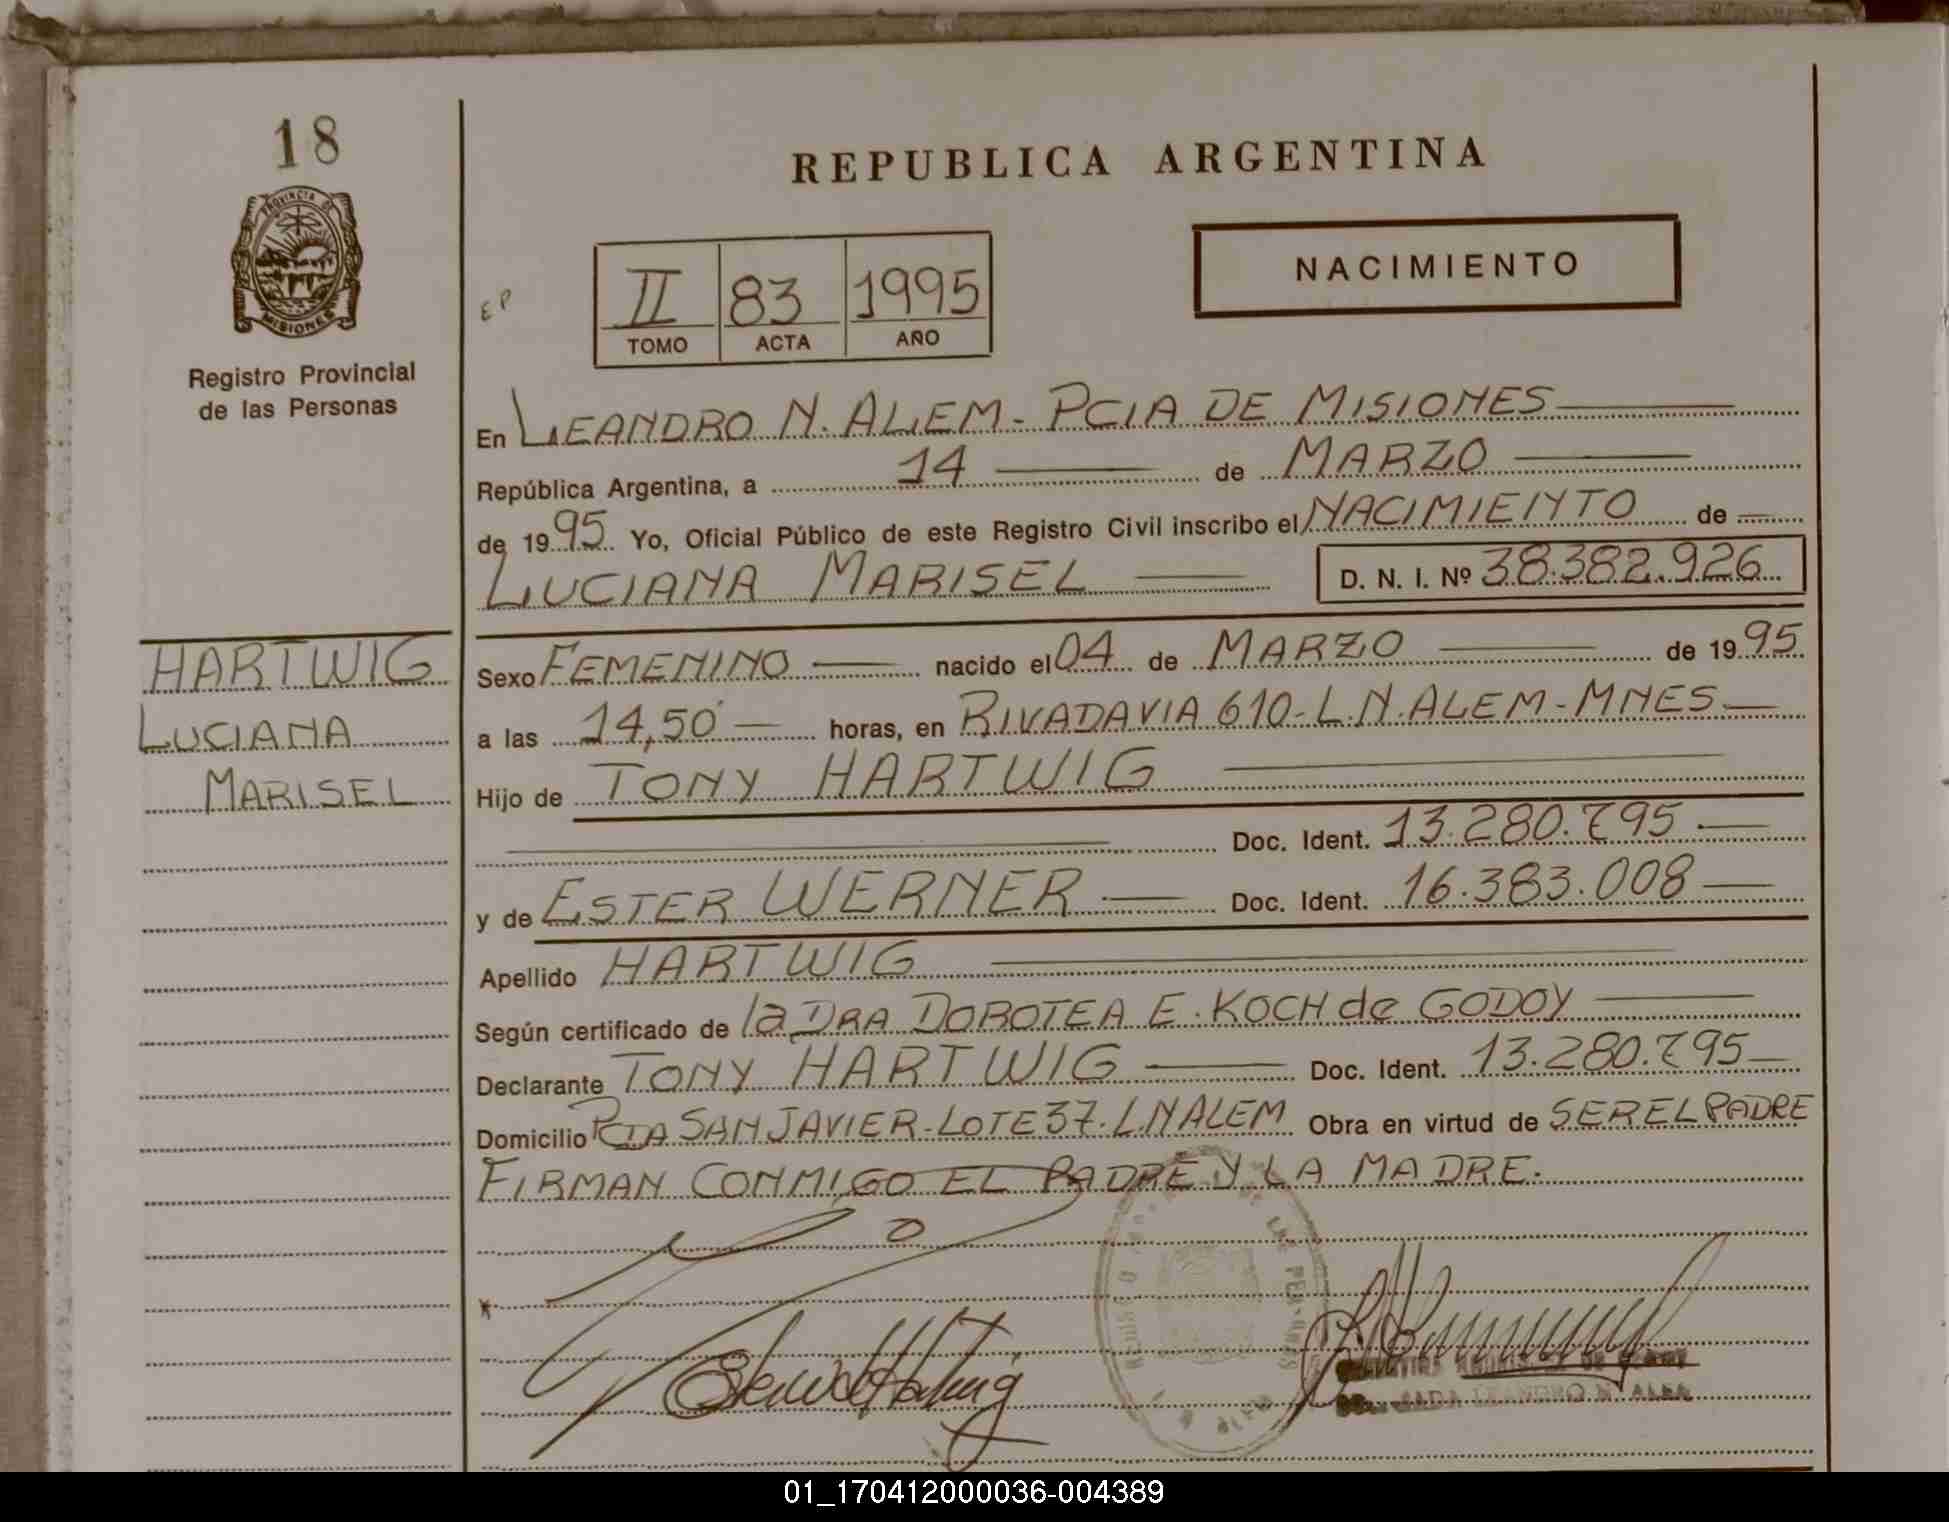 18
PROVINCIA DE
MISIONES
Registro Provincial
de las Personas
REPUBLICA ARGENTINA
NACIMIENTO
EP
II 83 1995
TOMO ACTA AÑO
En LEANDRO N. ALEM - PCIA DE MISIONES
República Argentina, a 14 de MARZO
de 1995 Yo, Oficial Público de este Registro Civil inscribo el NACIMIENTO de
LUCIANA MARISEL D. N. I. Nº 38.382.926
HARTWIG
LUCIANA
MARISEL
Sexo FEMENINO nacido el 04 de MARZO de 1995
a las 14,50 horas, en RIVADAVIA 610 - L.N. ALEM - MNES
Hijo de TONY HARTWIG
Doc. Ident. 13.280.795
y de ESTER WERNER Doc. Ident. 16.383.008
Apellido HARTWIG
Según certificado de la DRA DOROTEA E. KOCH de GODOY
Declarante TONY HARTWIG Doc. Ident. 13.280.795
Domicilio PCTA SAN JAVIER - LOTE 37 - L.N ALEM Obra en virtud de SER EL PADRE
FIRMAN CONMIGO EL PADRE Y LA MADRE.
01_170412000036-004389